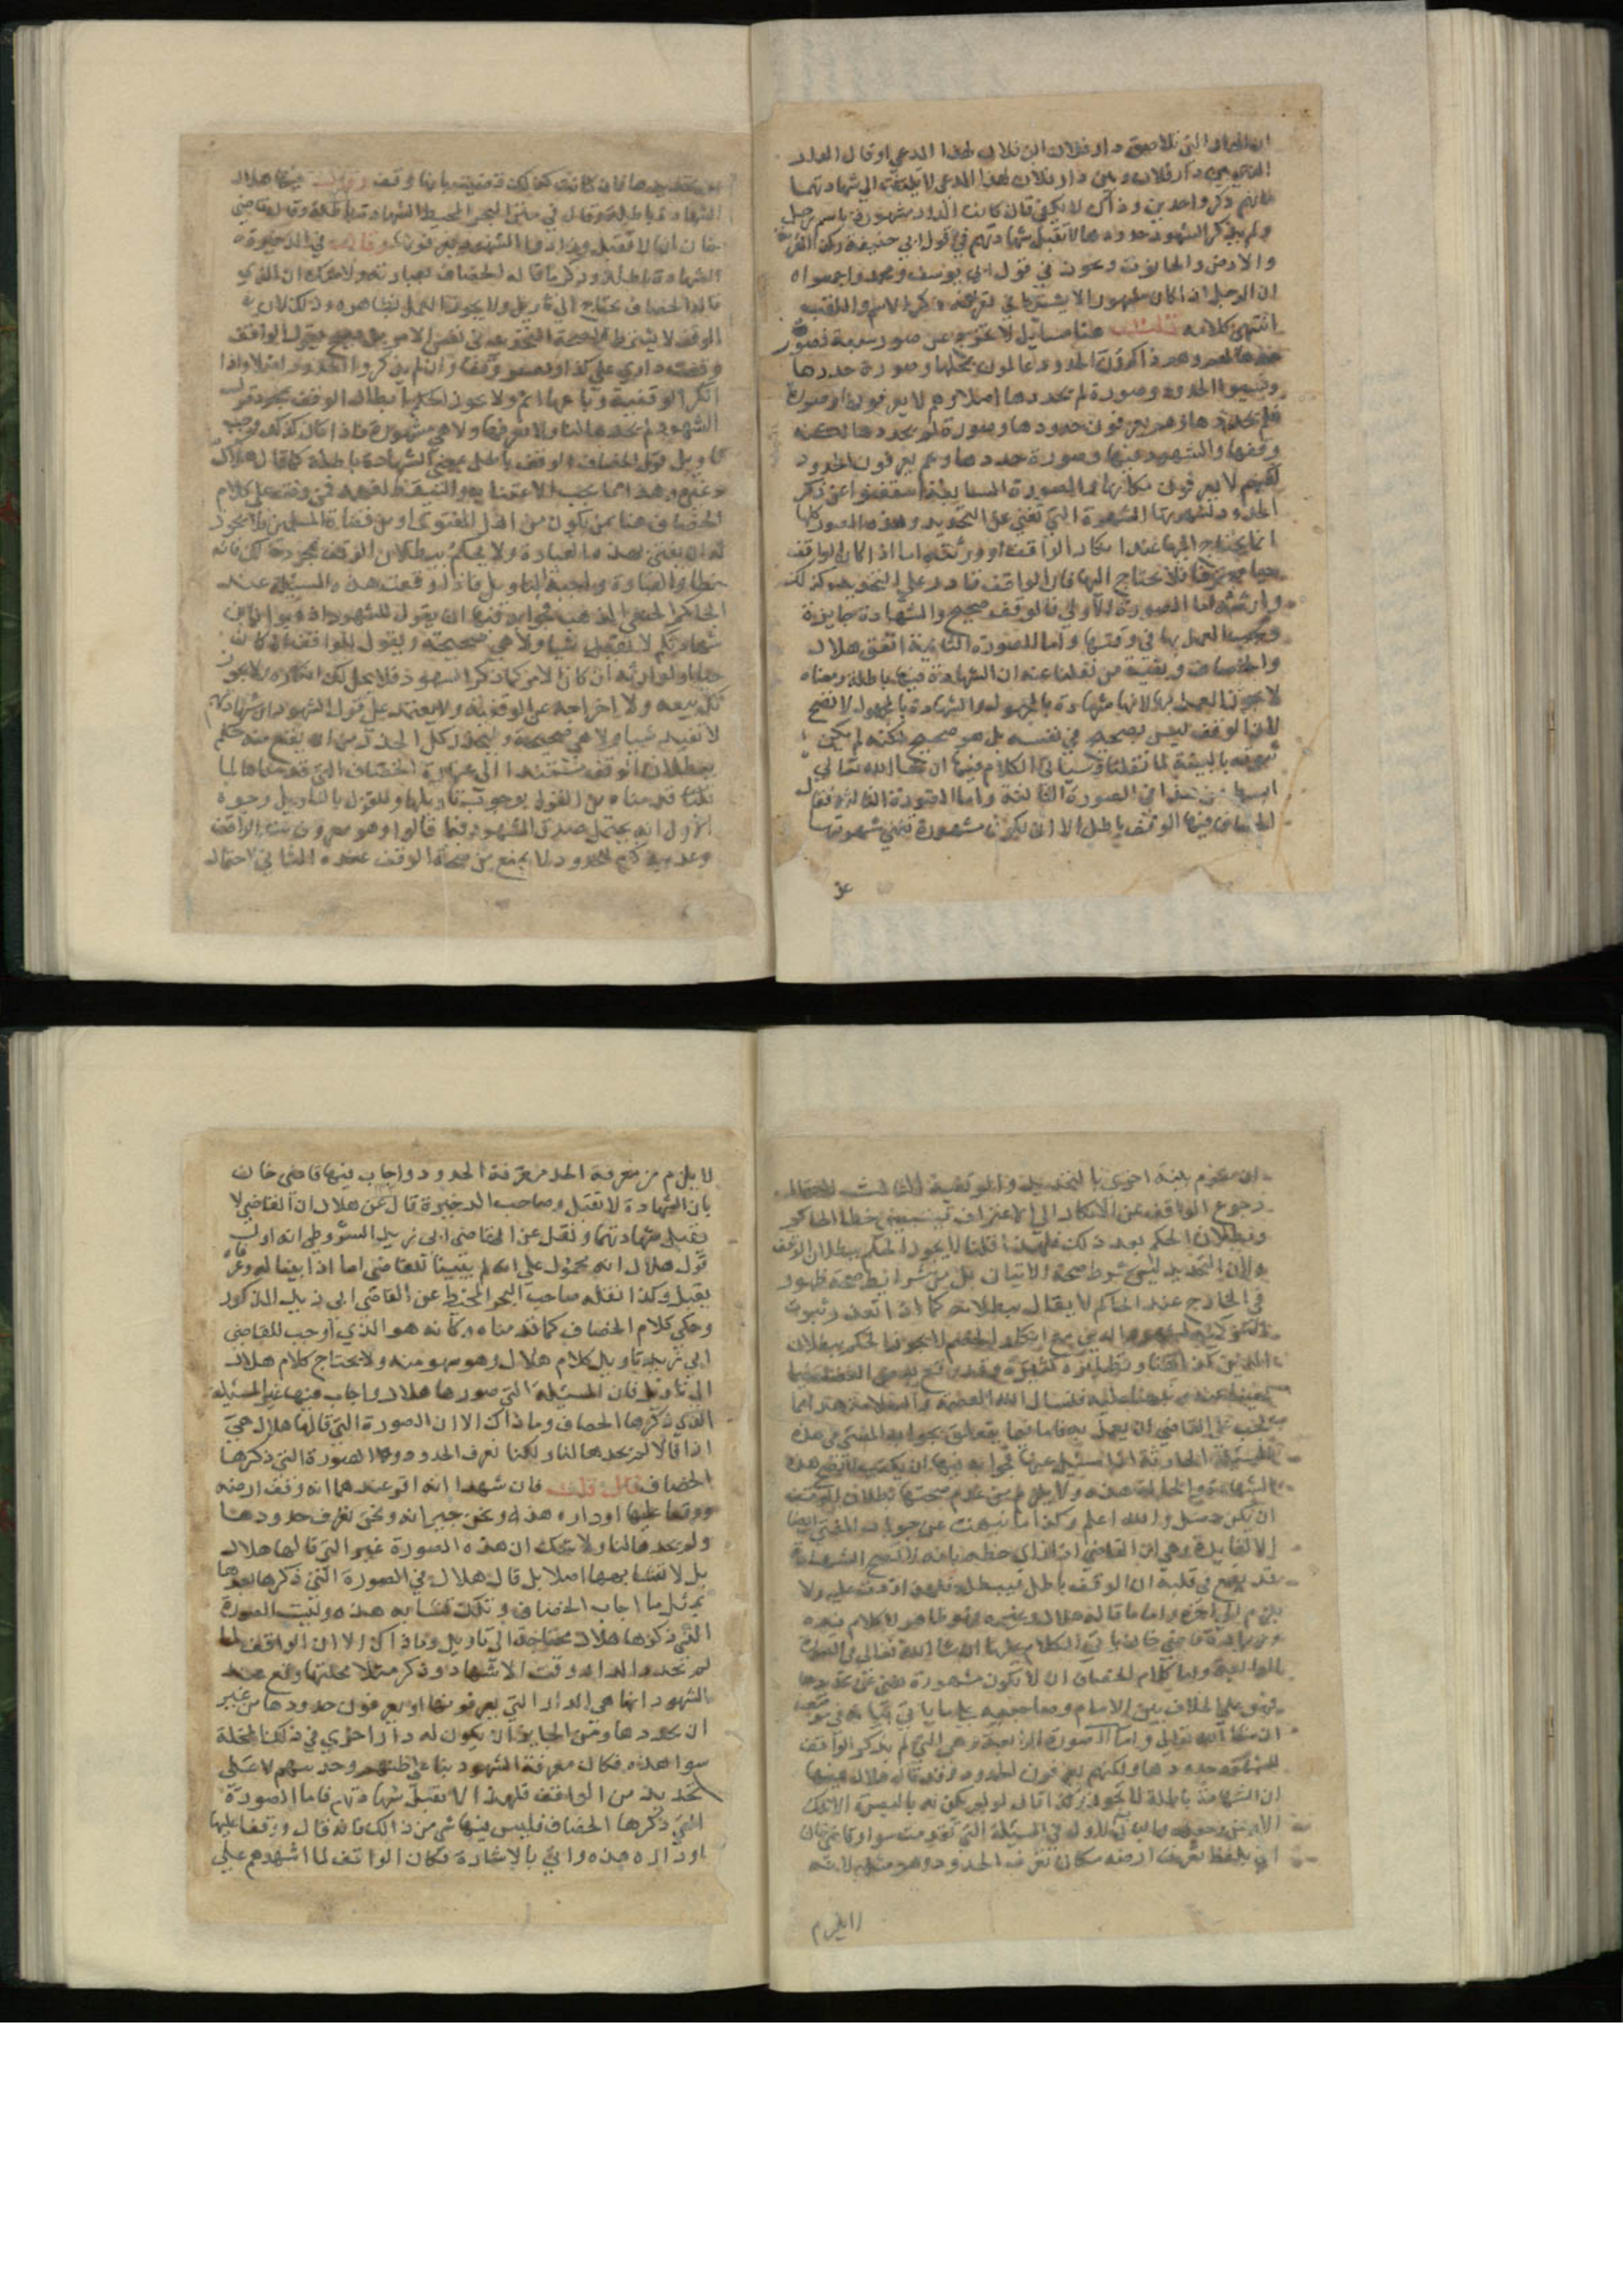 ان الدار التي تلاصق دار فلان ابن فلان لهذا المدعي او قال الدار
التي بين دار فلان وبين دار فلان لهذا المدعي لا يلتفت الى شهادتهما
ذكر واحدين وذاك لا يكفي قال كانت الدار مشهورة باسم رجل
ولم يذكر الشهود حدودها لا تقبل شهادتهم في قول ابي حنيفة وكذا القرية
والارض والحانوت ويجوز في قول ابي يوسف ومحمد واجمعوا
ان الرجل اذا كان مشهورا لا يشترط في تعريفه ذكر الاسم واللقب
انتهى كلامه قلت هنا مسايل لا تخرج عن صور سبعة
وصورة حددها
ونسيوا الحدود وصورة لم يحددها اصلا وهم لا يعرفون
وهم يعرفون حدودها وصورة لم يحددها
وقفها والشهود وصورة حددها وهم يعرفون الحدود
لكنهم لا يعرفون مكانها اما الصورة السابعة استغنوا عن ذكر
الحدود لشهرتها الشهرة التي تغني عن التحديد وهذه الصور كلها
انما يحتاج اليها عند انكار الواقف او ورثته اما اذا كان الواقف
فلا يحتاج اليها فان الواقف قادر على التحديد وكذلك
وارثه اما الصورة الاولى فالوقف صحيح والشهادة جايزة
ويجب العمل بها في وقتها واما الصورة الثانية اتفق هلال
والخصاف وبقية من نقلنا عنه ان الشهادة فيها باطلة ومعناه
لا يجوز العمل بها لانها شهادة بالمجهول والشهادة بالمجهول لا تصح
لان الوقف ليس بصحيح في نفسه بل هو صحيح لكنه لم يكن
ثبوته بالبينة لما نقلنا وسياتي الكلام فيها ان شا الله تعالى
في الصورة الثالثة واما الصورة الثالثة فقال
الخصاف فيها الوقف باطل الا ان تكون مشهورة تغني شهرتها
عن
عن تحديدها فان كانت كذلك قضيت بانها وقف وقال فيها هلال
الشهادة باطلة وقال في مفتي البحر المحيط الشهادة باطلة وقال قاضي
خان انها لا تقبل وزاد فيها الشهود يعرفون وقال في الذخيرة
الشهادة باطلة وذكر ما قاله الخصاف بعبارته ولا شك ان الذي
قاله الخصاف يحتاج الى تاويل ولا يجوز العمل بظاهره وذلك لان
الوقف لا يشترط لصحته التحديد في نفس الامر بقول الواقف
وقفت داري على كذا وان لم يذكروا الحدود واذا
انكر الوقفية وباعها اثم ولا يجوز الحكم بابطال الوقف بمجرد قول
الشهود لم يحددها لنا ولا نعرفها ولا هي مشهورة فاذا كان كذلك وجب
تاويل قول الخصاف الوقف باطل بمعنى الشهادة باطلة كما قال هلال
وغيره وهذا مما يجب الاعتنا به والتيقظ لفهمه فمن وقف على كلام
الخصاف هنا ممن يكون من اهل الفتوى او من قضاة المسلمين لا يجوز
له ان يفتي بهذه العبارة ولا يحكم ببطلان الوقف بمجرد ذلك فانه
خطا والعبارة واجبة التاويل فاذا وقعت هذه المسئلة عند
الحاكم الحنفي المذهب فجوابه فيها ان يقول للشهود اذهبوا فان
شهادتكم لا تفيد شيا ولا هي صحيحة ويقول للواقف ان كان
حيا او لوارثه ان كان الامر كما ذكر الشهود فلا يحل لك انكاره ولا يجوز
لك بيعه ولا اخراجه عن الوقفية ولا يعتمد على قول الشهود ان شهادتهم
لا تفيد شيا ولا هي صحيحة وليحذر كل الحذر من ان يقع منه حكم
ببطلان الوقف مستندا الى عبارة الخصاف التي قدمناها لما
قلنا قدمناه من القول بوجوب تاويلها وللقول بالتاويل وجوه
الاول انه يحتمل صدق الشهود فيما قالوا وهو معروف عند الواقف
وعدم ذكرهم للحدود لا يمنع من صحة الوقف عنده الثاني احتمال
ان تقوم بينة اخرى بالتحديد والوقفية الثالث احتمال
رجوع الواقف عن الانكار الى الاعتراف فيتبين خطا الحاكم
وبطلان الحكم بعد ذلك فلهذا قلنا لا يجوز الحكم ببطلان الوقف
ولان التحديد ليس شرط صحة الاتيان بل من شرايط صحة ظهور
في الخارج عند الحاكم لا يقال ببطلانه كما اذا تعذر ثبوت
مع انكار الخصم لا يجوز الحكم ببطلان
ونظايره كثيرة وقد
فنسال الله العصمة والسلامة هذا ما
يجب على القاضي ان يعمل به فاما فيما يتعلق بجواب المفتي في هذه
المسئلة الحادثة اذا سئل عنها فجوابه فيها ان يكتب لا تصح هذه
الشهادة والحالة هذه ولا يلزم من عدم صحتها بطلان الوقف
ان يكن حصل والله اعلم وكذا ما نبهت عن جواب المفتي ايضا
الا لفايدة وهي ان القاضي اذا راى خطه بانه لا تصح الشهادة
قد يقع في قلبه ان الوقف باطل فيبطله فلهذا وقفت عليه ولا
يلزم الى اخره واما ما قاله هلال وغيره فهو ظاهر لا كلام فيه
قاضي خان ياتي الكلام عليها ان شا الله تعالى في الصورة
الرابعة واما كلام الخصاف ان لا تكون مشهورة تغني عن تحديدها
فهو على الخلاف بين الامام وصاحبيه على ما ياتي بيانه في موضعه
ان شا الله تعالى واما الصورة الرابعة وهي التي لم يذكر الواقف
للشهود حدودها ولكنهم يعرفون الحدود فقد قال هلال فيها
ان الشهادة باطلة
التي تقدمت سوا وقاضي خان
اتى بلفظ نعرف ارضه مكان نعرف الحدود وهو مثله لانه
لا يلزم
لا يلزم من معرفة الحد معرفة الحدود واجاب فيها قاضي خان
بان الشهادة لا تقبل وصاحب الذخيرة قال عن هلال ان القاضي لا
يقبل شهادتهما ونقل عن القاضي ابي زيد الشروطي انه اول
قول هلال انه محمول على انه لم يتبينا للقاضي اما اذا بينا له وعرفا
يقبل وكذا نقله صاحب البحر المحيط عن القاضي ابي زيد المذكور
وحكى كلام الخصاف كما قدمناه وكانه هو الذي اوجب للقاضي
ابي زيد تاويل كلام هلال وهو سهو منه ولا يحتاج كلام هلال
الى تاويل فان المسئلة التي صورها هلال واجاب فيها غير المسئلة
الذي ذكرها الخصاف وما ذاك الا ان الصورة التي قالها هلال هي
اذا قالا لم يحدها لنا ولكنا نعرف الحدود والصورة التي ذكرها
الخصاف قال قلت فان شهدا انه اقر عندهما انه وقف ارضه
ووقفا عليها او داره هذه ونحن جيرانه ونحن نعرف حدودها
ولم يحدها لنا ولا شك ان هذه الصورة غير التي قالها هلال
بل لا تشابهها اصلا بل قال هلال في الصورة التي ذكرها بعدها
بمثل ما اجاب الخصاف وتلك تشابه هذه وليست الصورة
التي ذكرها هلال محتاجة الى تاويل وما ذاك الا ان الواقف لما
لم يحدد الدار وقت الاشهاد وذكر مثلا محلتها وقع عند
الشهود انها هي الدار التي يعرفونها او يعرفون حدودها من غير
ان يحددها ومن الجايز ان يكون له دار اخرى في ذلك المحلة
سوا هذه فكان معرفة الشهود بنا على ظنهم وحدسهم لا على
تحديد من الواقف فلهذا لا تقبل شهادتهم فاما الصورة
التي ذكرها الخصاف فليس فيها شي من ذالك فانه قال ووقفا عليها
او داره هذه واتى بالاشارة فكان الواقف لما اشهدهم على